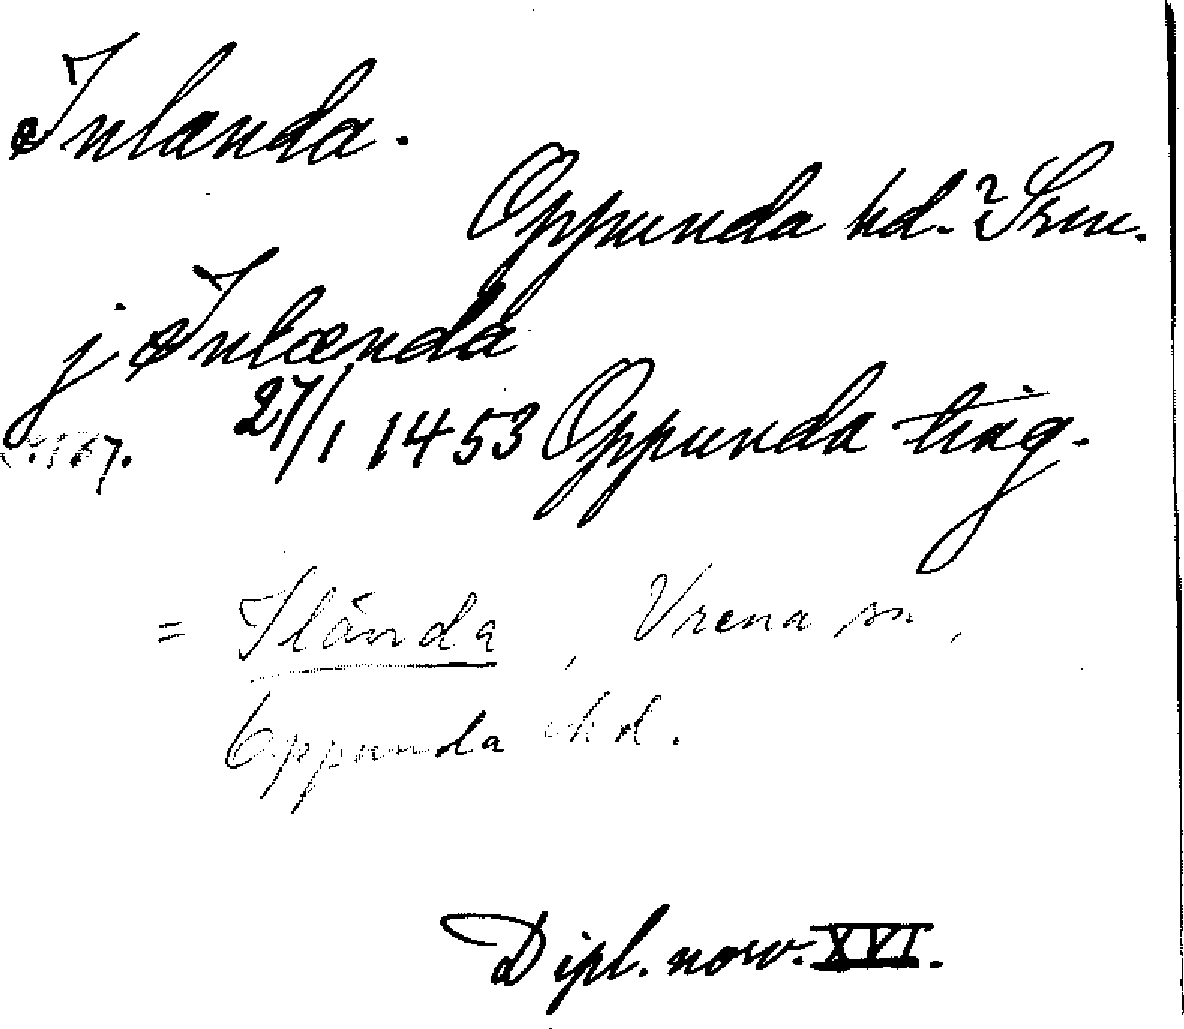 Inlanda.
Oppunda hd.? Srm.
j Inlænda
s. 187. 27/1 1453 Oppunda ting.
= Ilånda, Vrena sn,
Oppunda hd.
Dipl. norv. XVI.